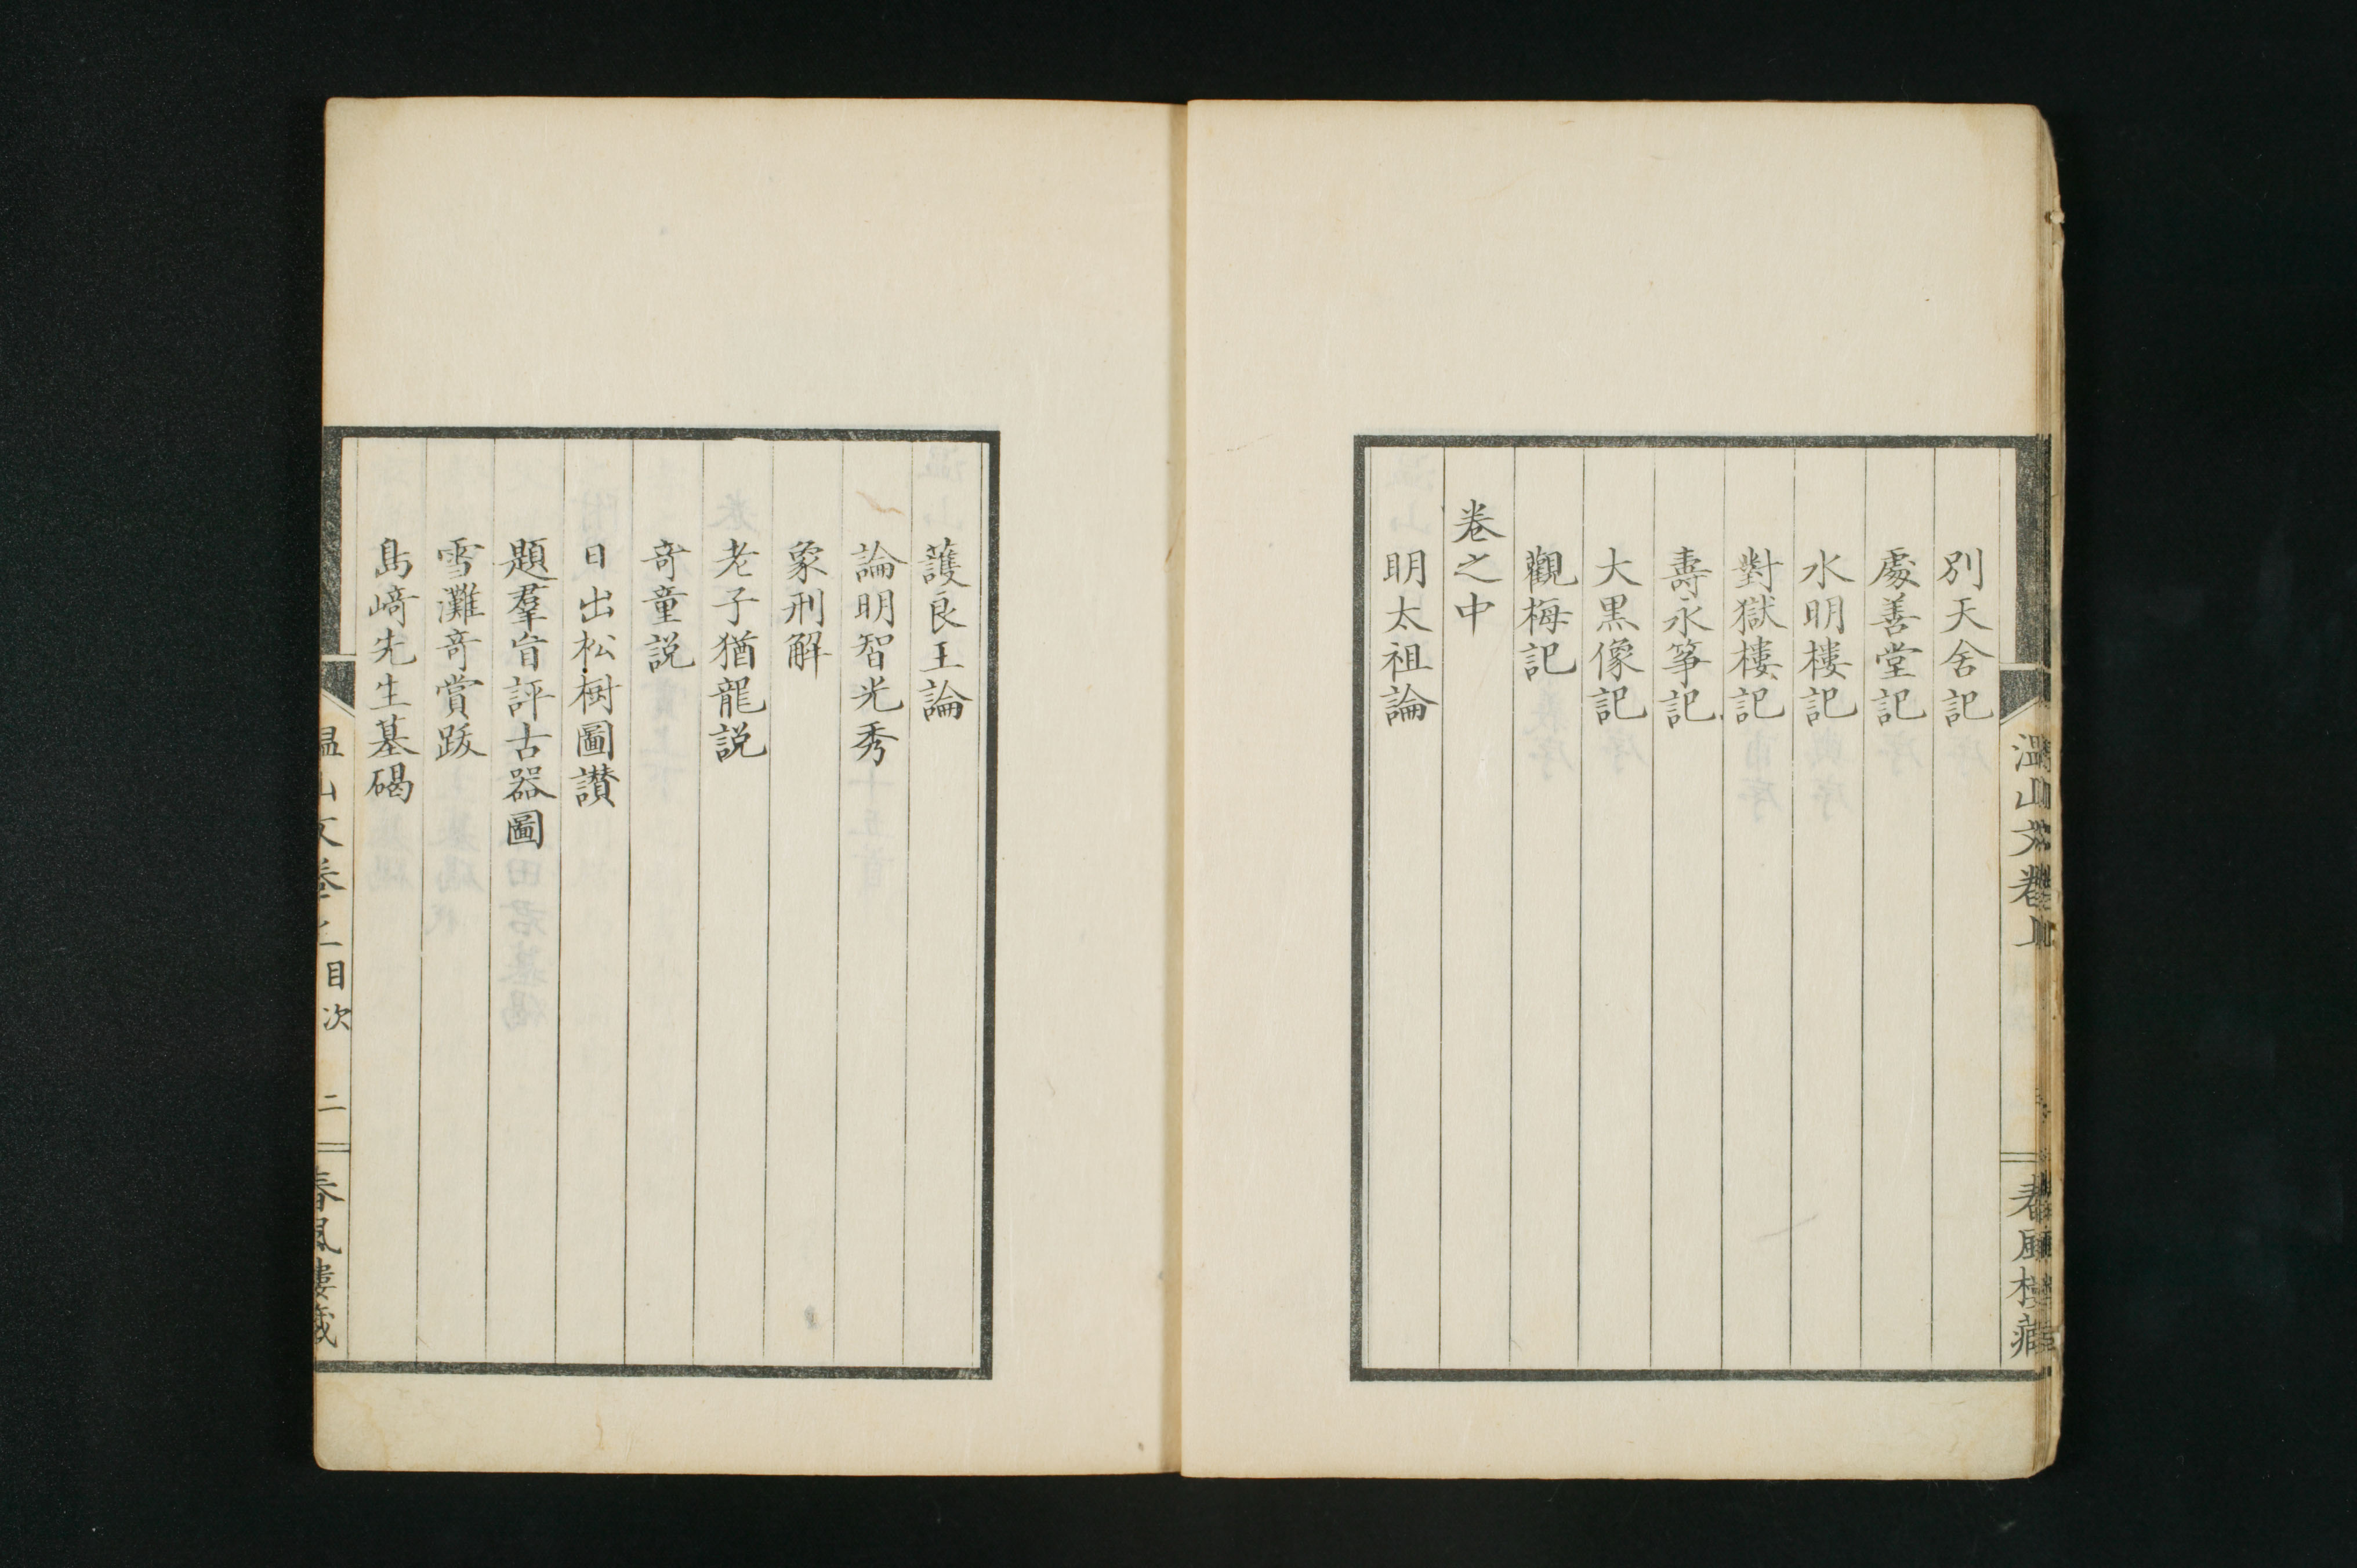 別天舍記
處善堂記
水明樓記
對獄樓記
壽永筝記
大黒像記
觀梅記
卷之中
明太祖論
溫山文卷上
春風樓藏
護良王論
論明智光秀
象刑解
老子猶龍説
竒童説
日出松樹圖讃
題羣盲評古器圖
雪灘竒賞跋
島﨑先生墓碣
溫山文卷上目次 二
春風樓藏